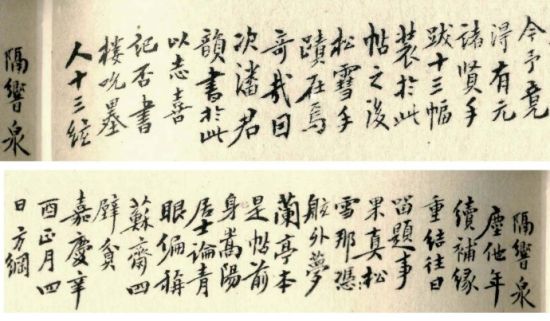 今予竟
得有元
諸賢手
跋十三幅
装於此
帖之後
松雪手
蹟在焉
奇哉因
次潘君
韻書於此
以志喜
記否書
樓吮墨
人十三絃
隔響泉
隔響泉
塵他年
續補緣
重結往日
留題事
果真松
雪那憑
舷外夢
蘭亭本
是帖前
身嵩陽
居士論青
眼偏稱
蘇齋四
壁貧
嘉慶辛
酉正月四
日方綱